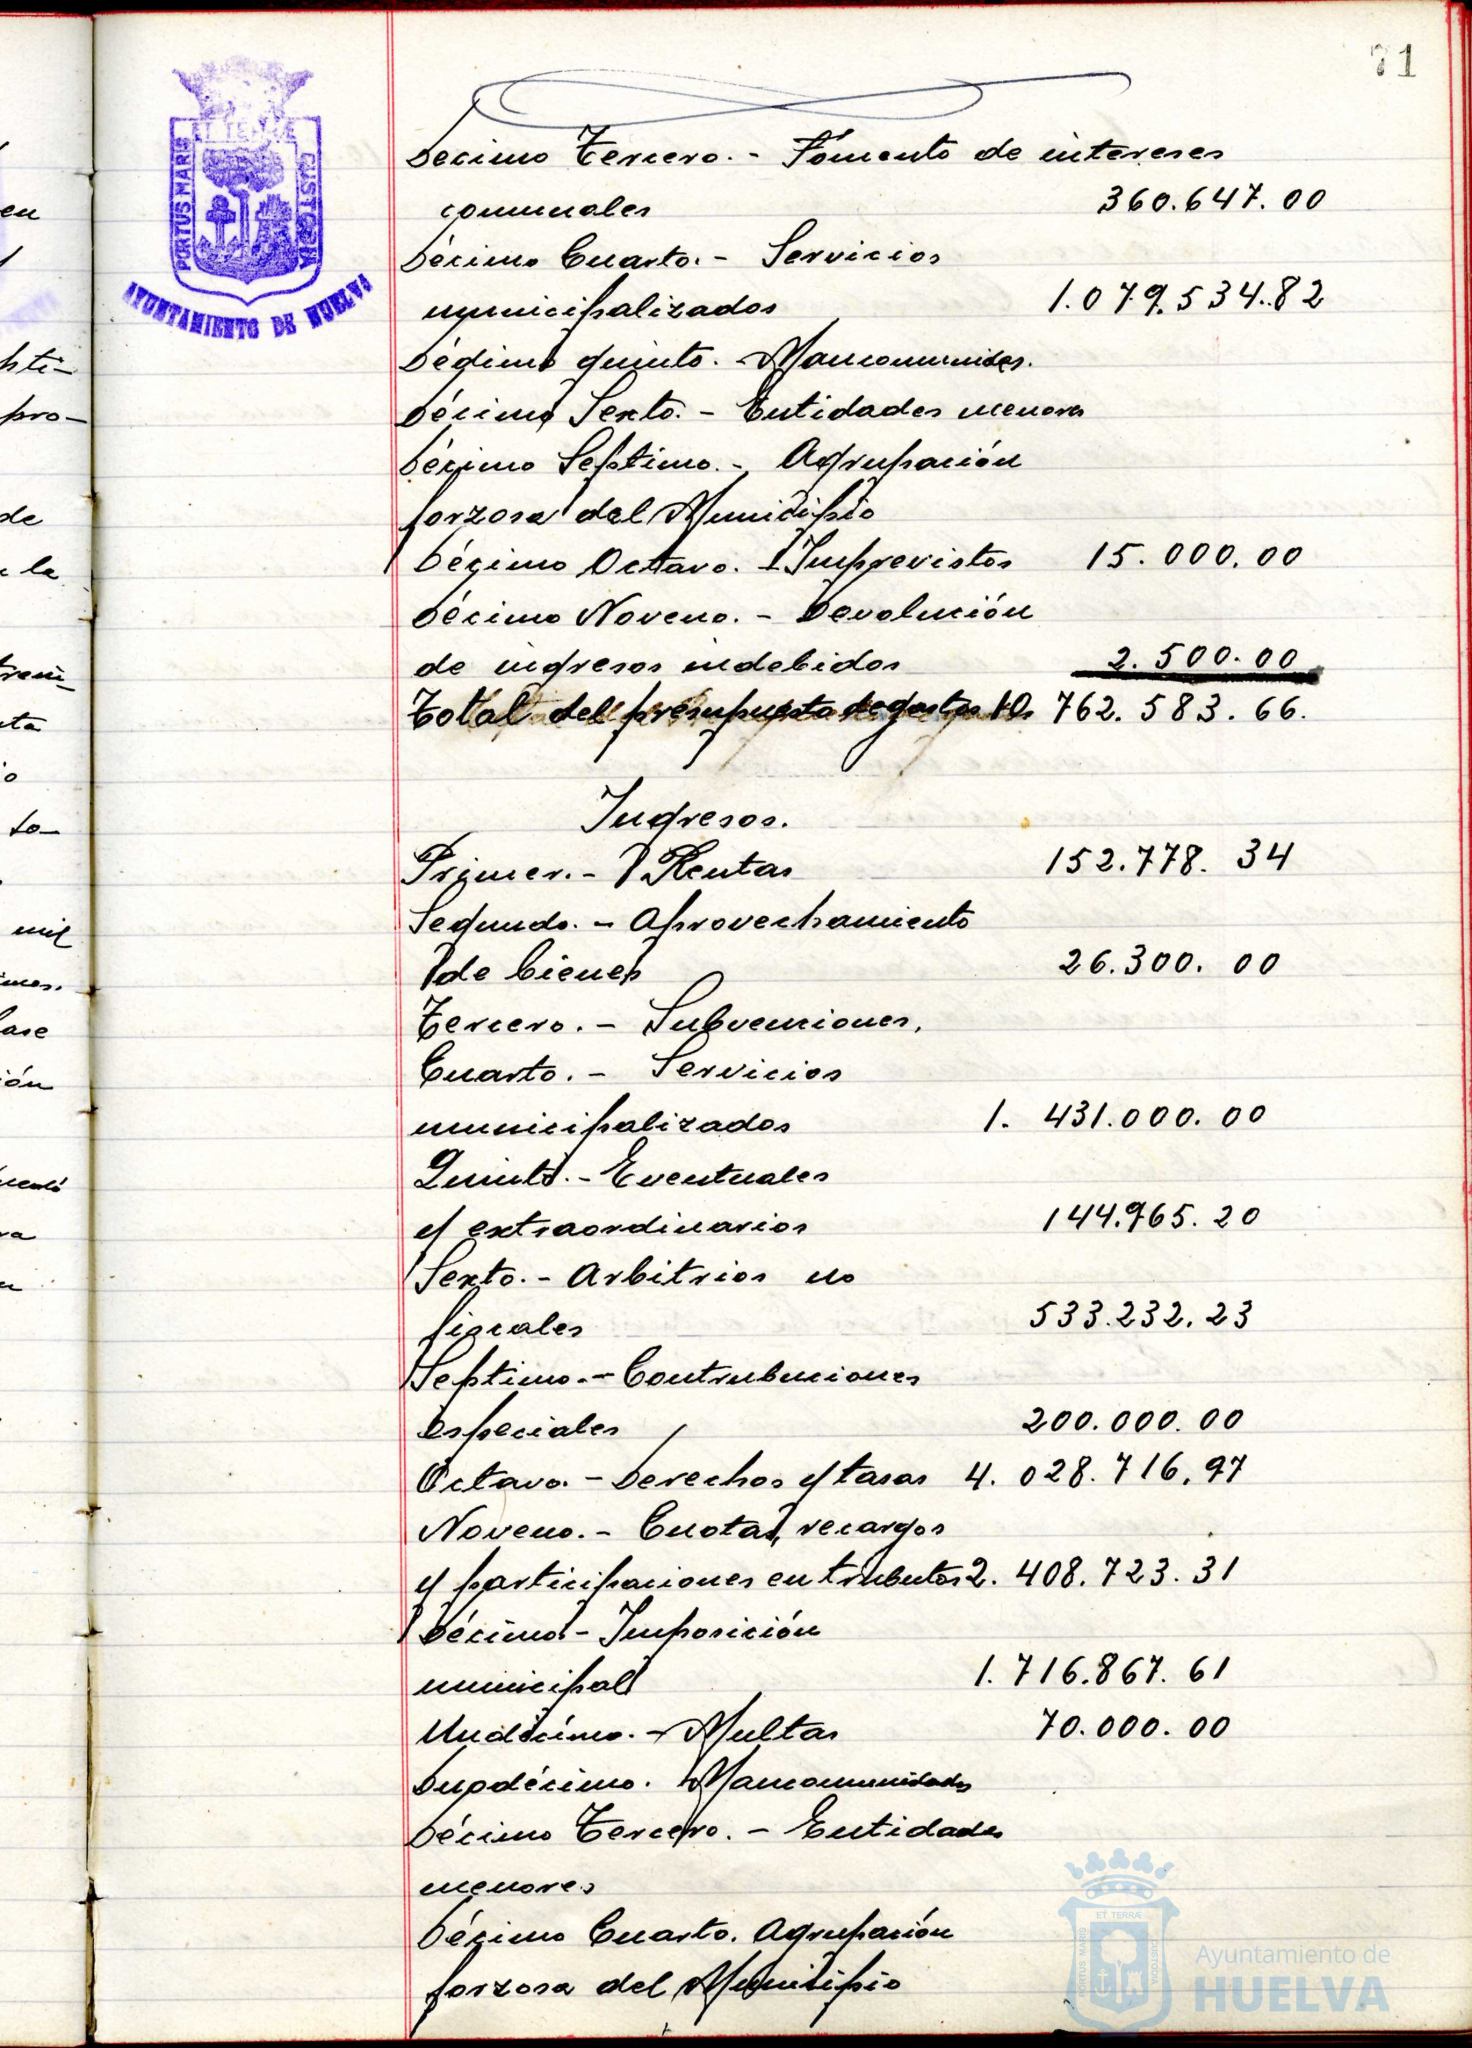 71
ET TERRE
PORTUS MARIS
CUSTODIA
AYUNTAMIENTO DE HUELVA
Decimo Tercero.- Fomento de intereses
comunales 360.647.00
Décimo Cuarto.- Servicios
municipalizados 1.079.534.82
Décimo quinto. - Mancomunides.
Décimo Sexto.- Entidades menores
Décimo Septimo.- Agrupación
forzosa del Municipio
Décimo Octavo. - Imprevistos 15.000.00
Décimo Noveno.- Devolución
de ingresos indebidos 2.500.00
Total del presupuesto de gastos 10. 762.583.66.
Ingresos.
Primer.- Rentas 152.778.34
Segundo.- Aprovechamiento
de bienes 26.300.00
Tercero.- Subvenciones,
Cuarto.- Servicios
municipalizados 1.431.000.00
Quinto.- Eventuales
y extraordinarios 144.965.20
Sexto.- Arbitrios no
fiscales 533.232.23
Septimo.- Contribuciones
especiales 200.000.00
Octavo.- Derechos y tasas 4.028.716,97
Noveno.- Cuotas, recargos
y participaciones en tributos 2.408.723.31
Décimo- Imposición
municipal 1.716.867.61
Undécimo.- Multas 70.000.00
Duodécimo. Mancomunidades
Décimo Tercero.- Entidades
menores
Décimo Cuarto. Agrupación
forzosa del Municipio
en
sti-
pro-
de
la
ta
to-
mil
ión
ET TERRÆ
PORTUS MARIS
CUSTODIA
Ayuntamiento de
HUELVA